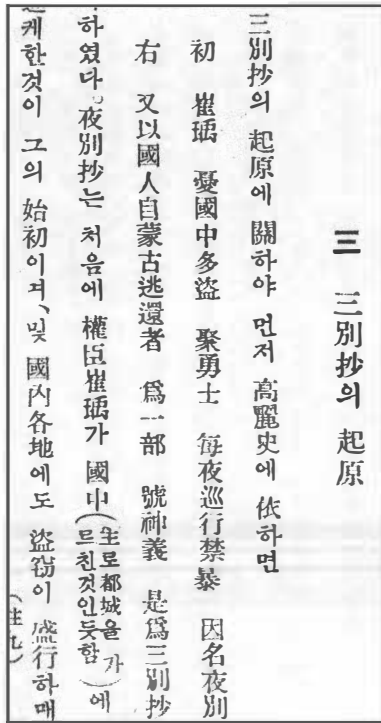 三 三別抄의 起原
三別抄의 起原에 關하야 먼저 高麗史에 依하면
初 崔瑀 憂國中多盜 聚勇士 每夜巡行禁暴 因名夜別
右 又以國人自蒙古逃還者 爲一部 號神義 是爲三別抄
하였다。夜別抄는 처음에 權臣崔瑀가 國中(主로都城을 가르친것인듯함)에
케한것이 그의 始初이며、및 國內各地에도 盜竊이 盛行하매
(註九)